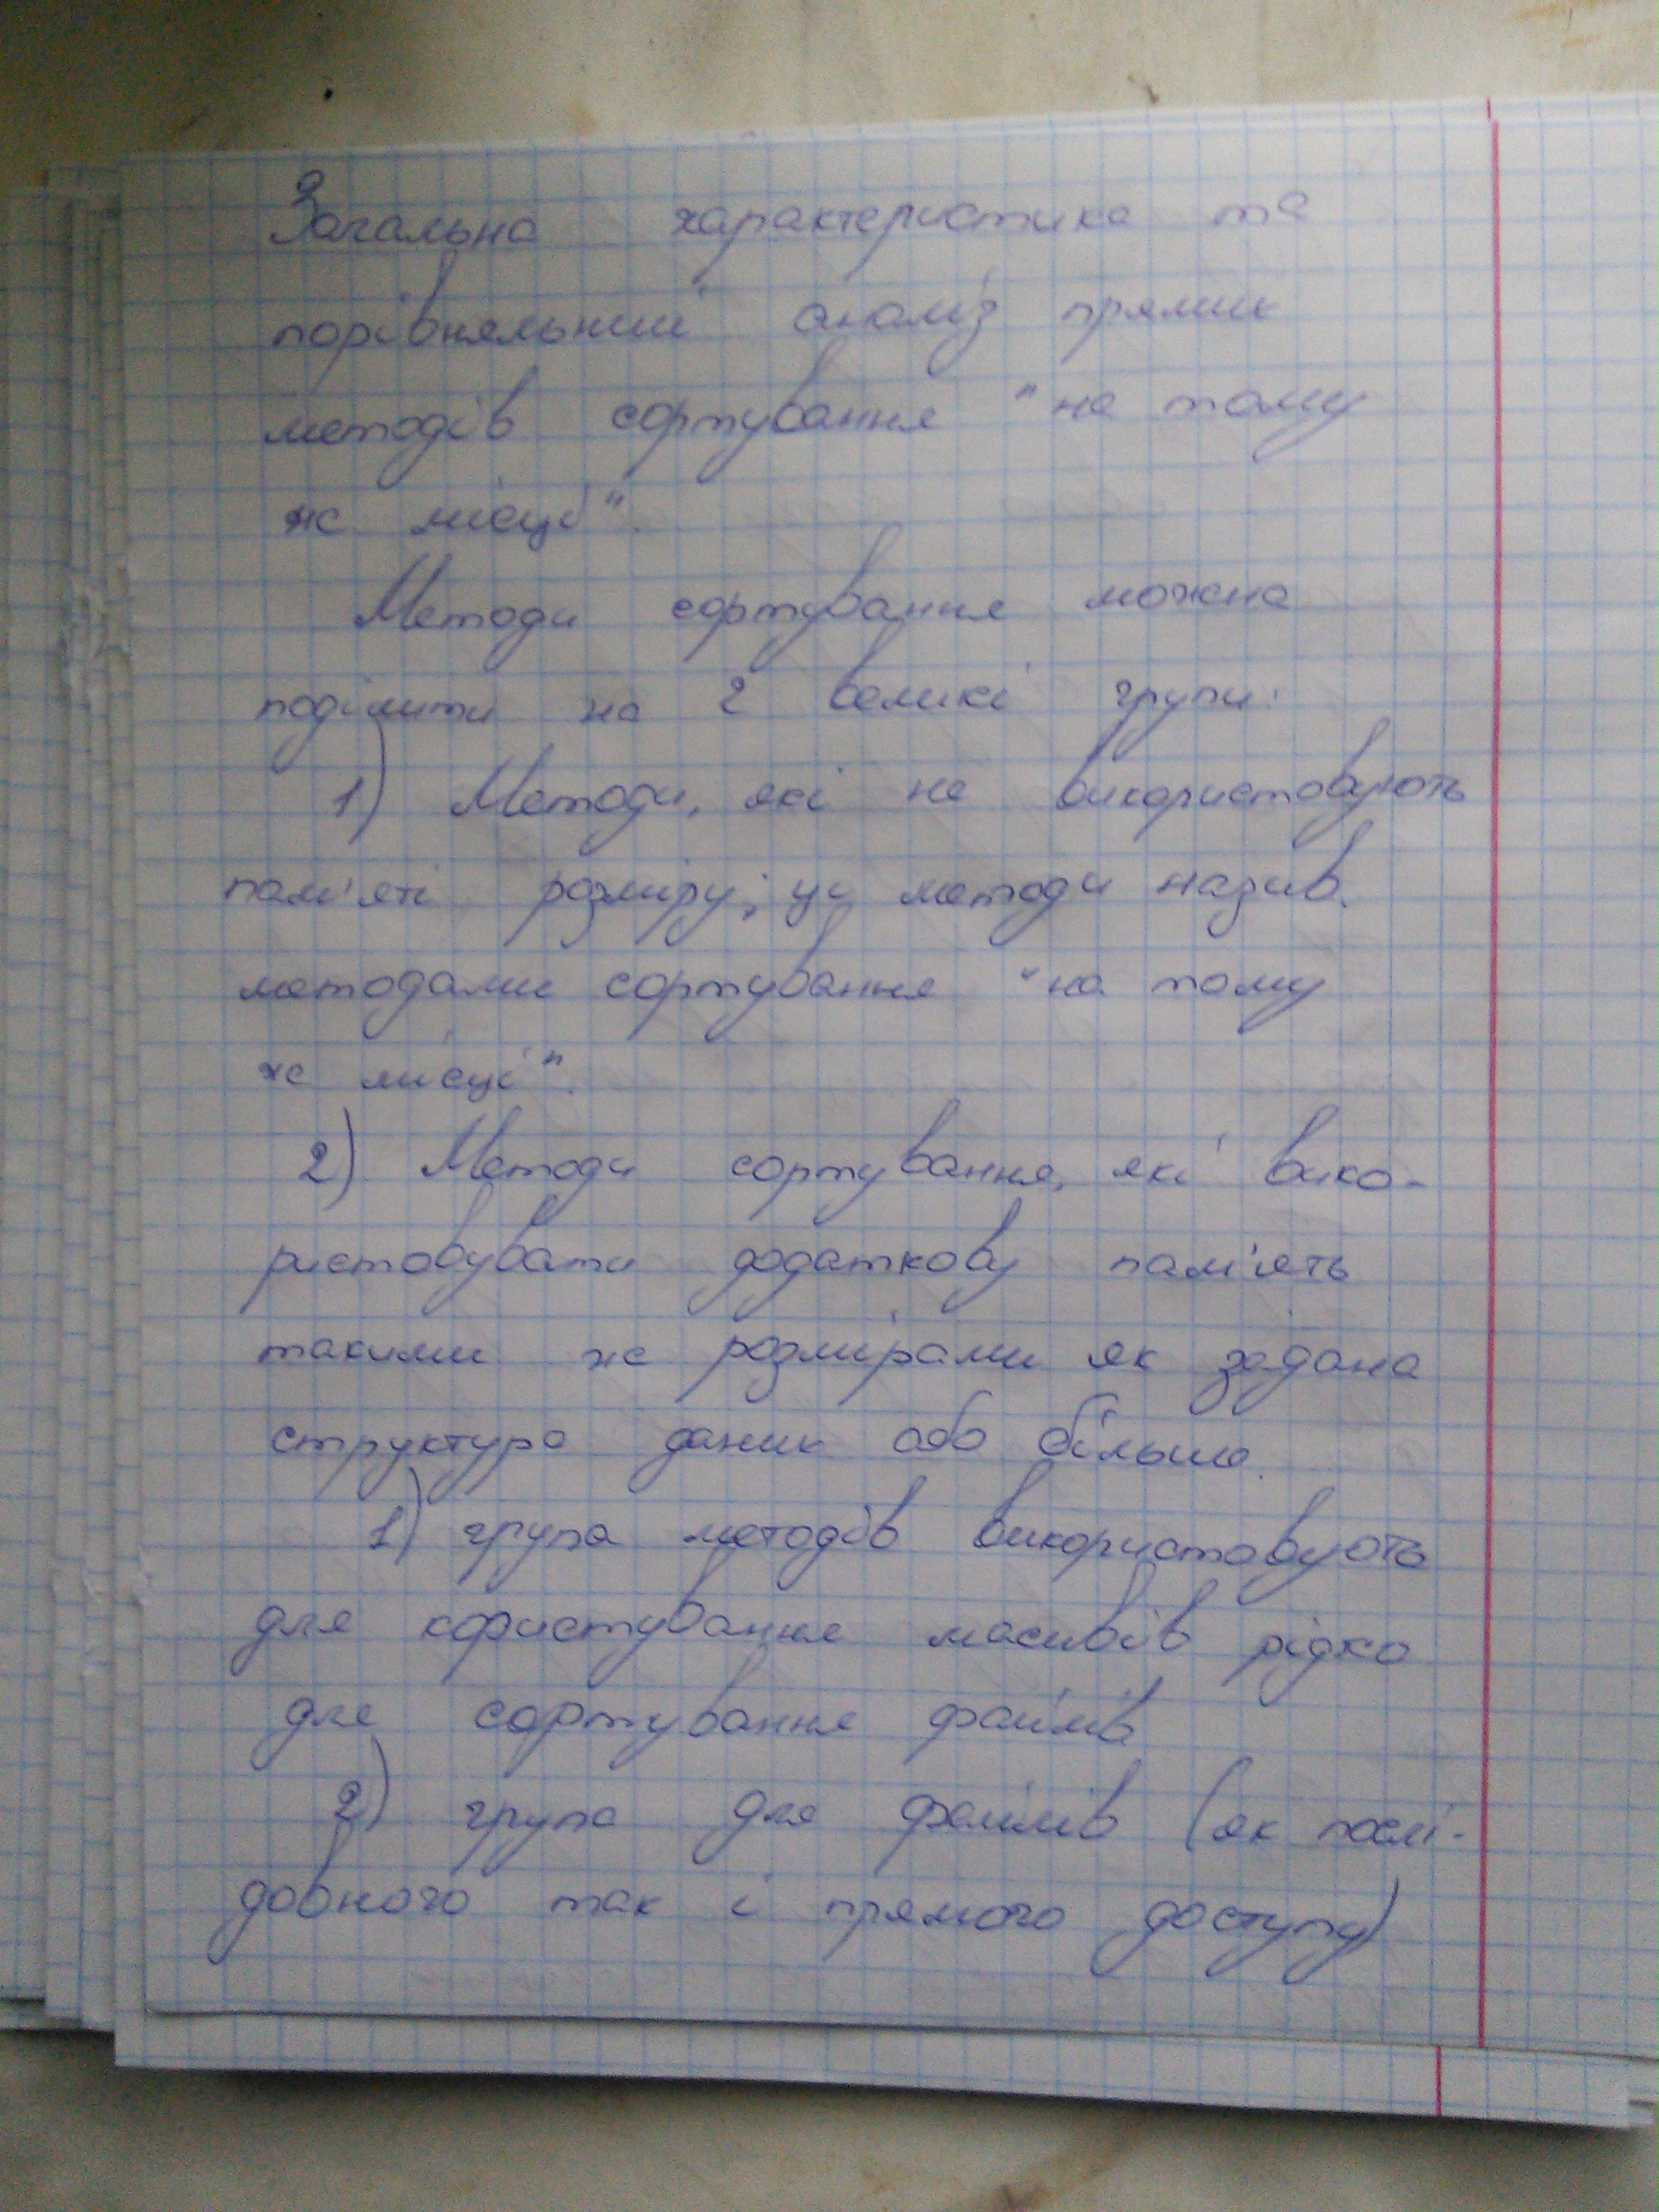 Загальна характеристика та
порівняльний аналіз прямих
методів сортування "на тому
же місці".
Методи сортування можна
поділити на 2 великі групи:
1) Методи, які не використовують
пам'яті розміру; ці методи назив.
методами сортування "на тому
же місці".
2) Методи сортування, які вико-
ристовувати додаткову пам'ять
такими же розмірами як задана
структура даних або більше.
1) група методів використовують
для користування масивів рідко
для сортування файлів
2) група для файлів (як послі-
довного так і прямого доступу)